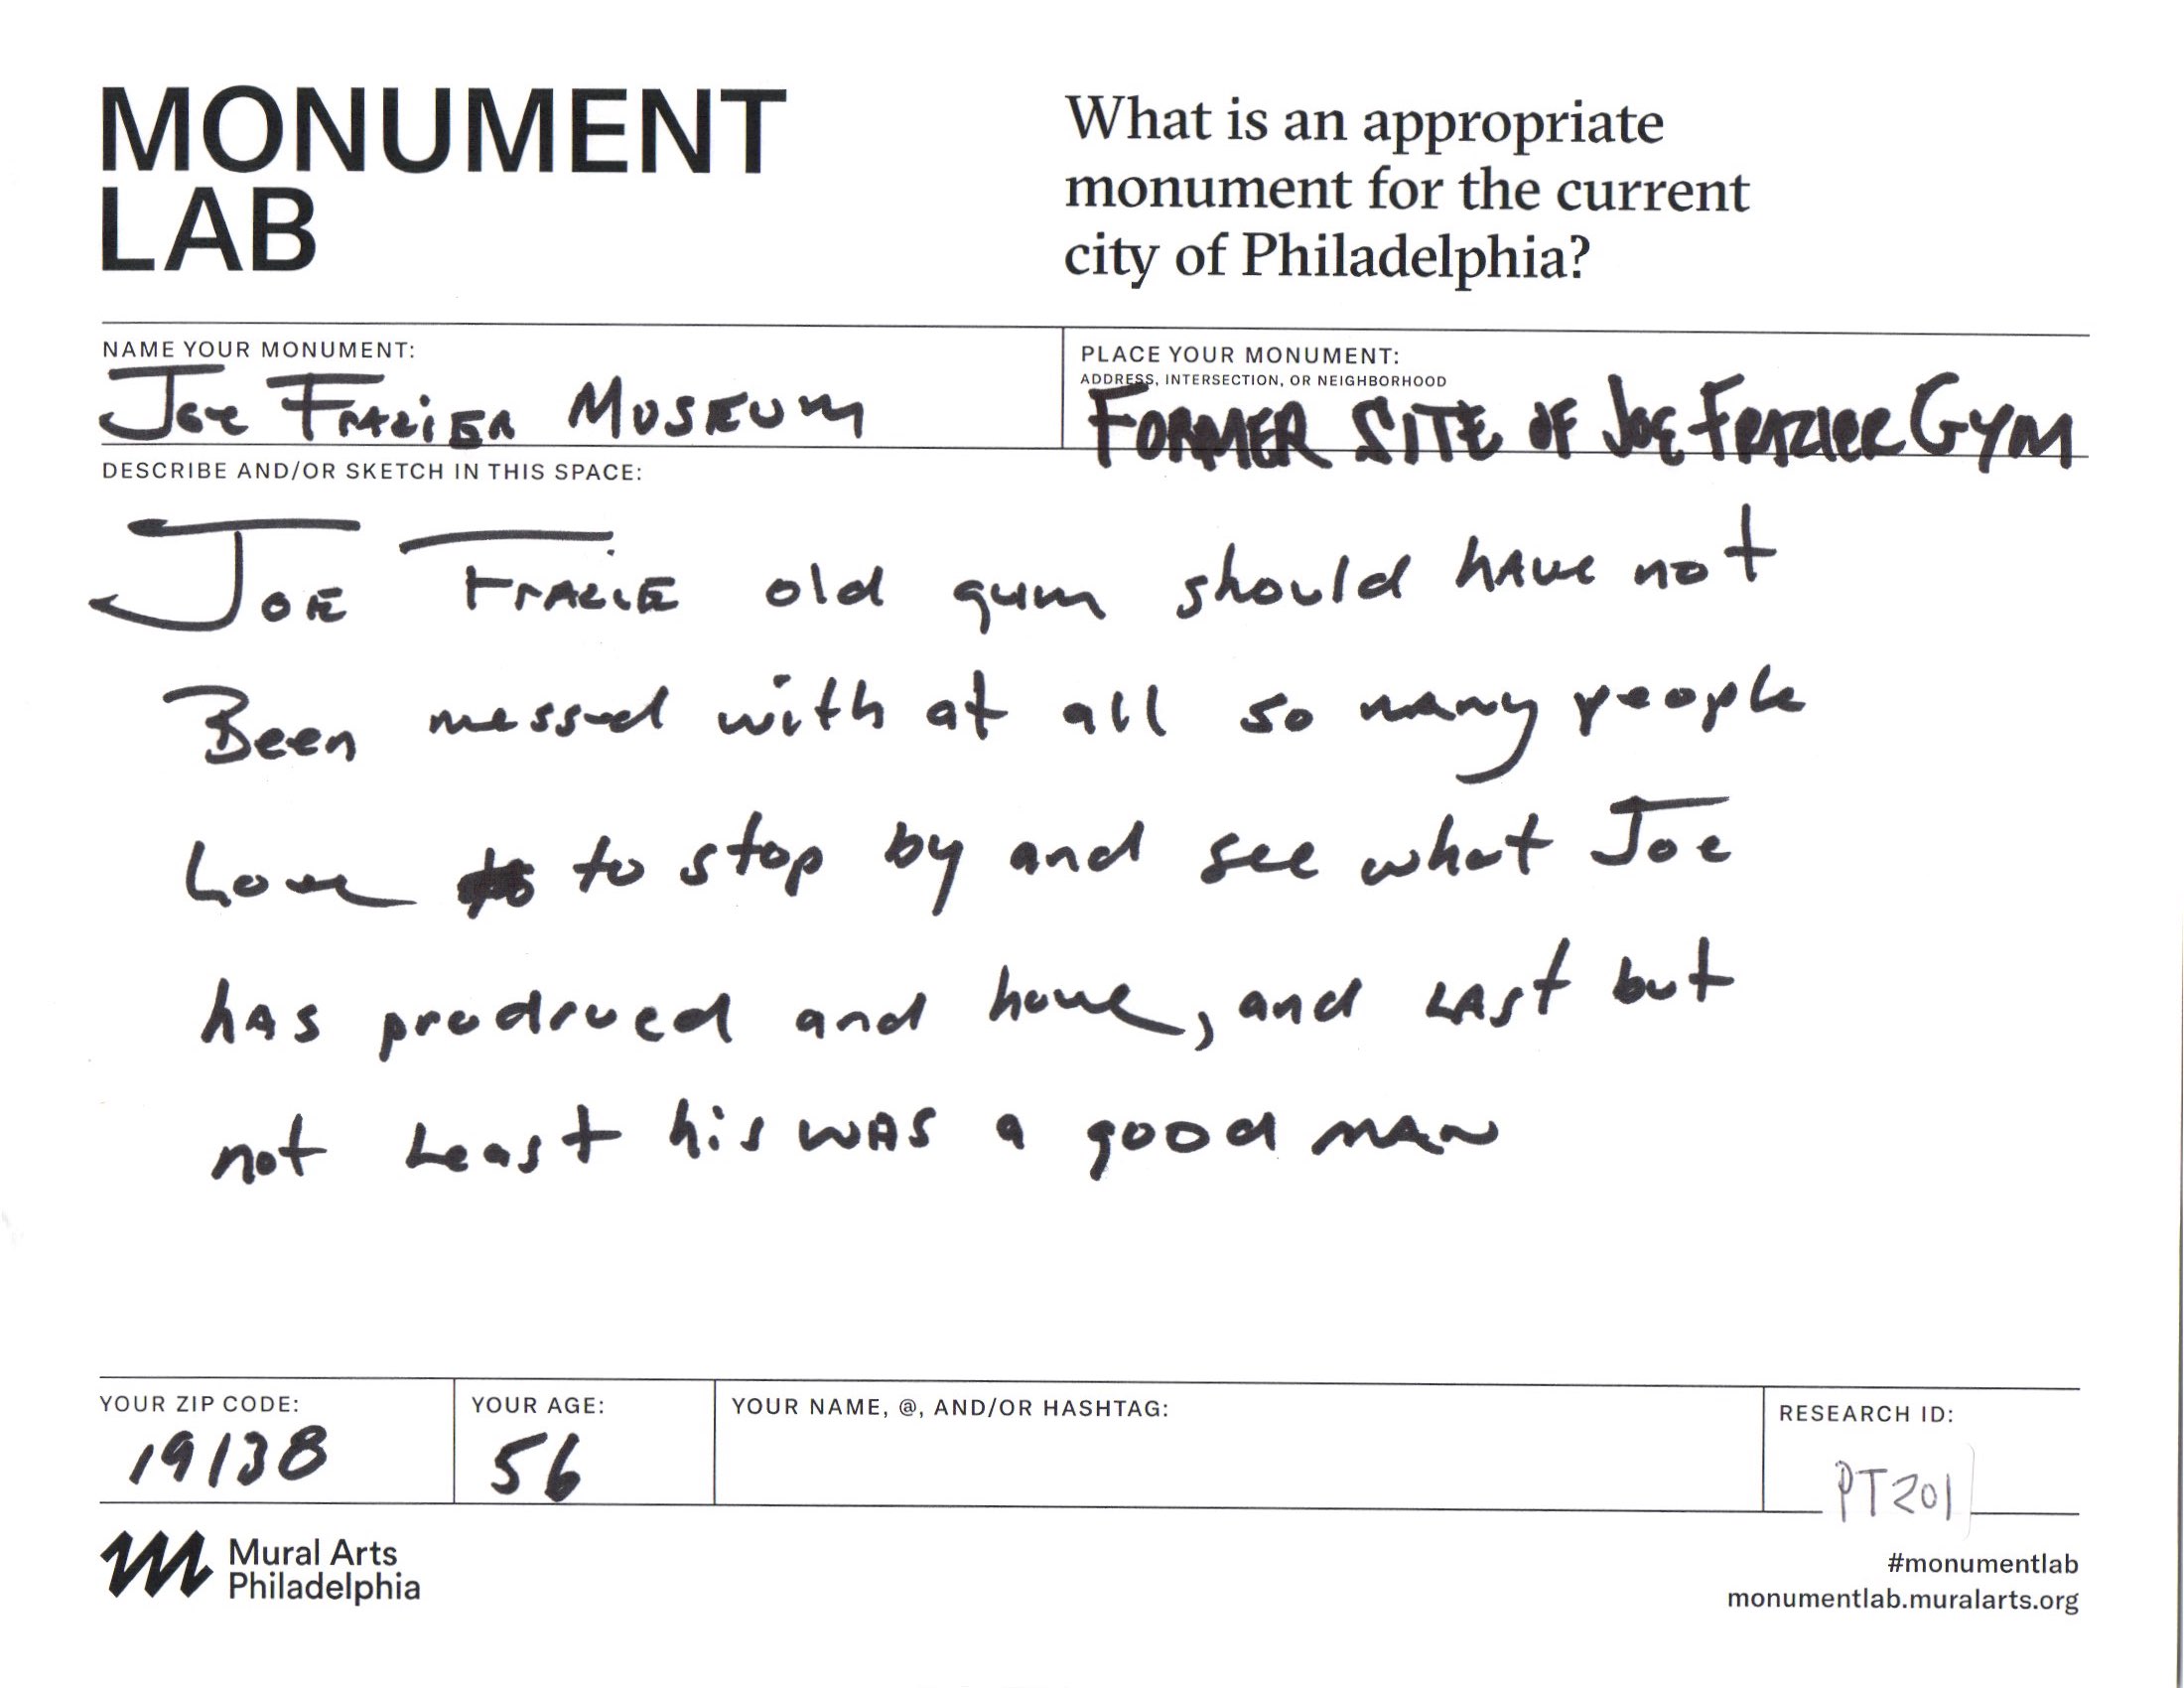 MONUMENT
LAB
What is an appropriate
monument for the current
city of Philadelphia?
NAME YOUR MONUMENT:
JOE FRAZIER MUSEUM
PLACE YOUR MONUMENT:
ADDRESS, INTERSECTION, OR NEIGHBORHOOD
FORMER SITE OF JOE FRAZIER GYM
DESCRIBE AND/OR SKETCH IN THIS SPACE:
JOE FRAZIE old gym should have not
Been messed with at all so many people
Love to stop by and see what Joe
has and have, and Last but
not Least his was a good man
YOUR ZIP CODE:
19138
YOUR AGE:
56
YOUR NAME, @, AND/OR HASHTAG:
RESEARCH ID:
PT201
Mural Arts
Philadelphia
#monumentlab
monumentlab.muralarts.org